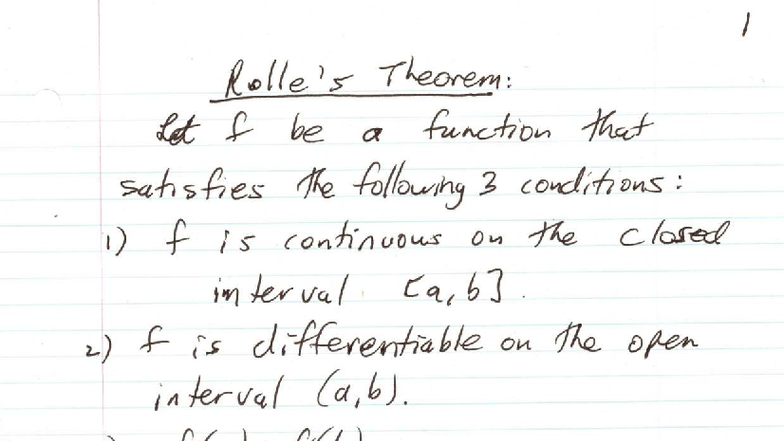 1
Rolle's Theorem:
Let f be a function that
satisfies the following 3 conditions:
1) f is continuous on the closed
interval [a,b].
2) f is differentiable on the open
interval (a,b).